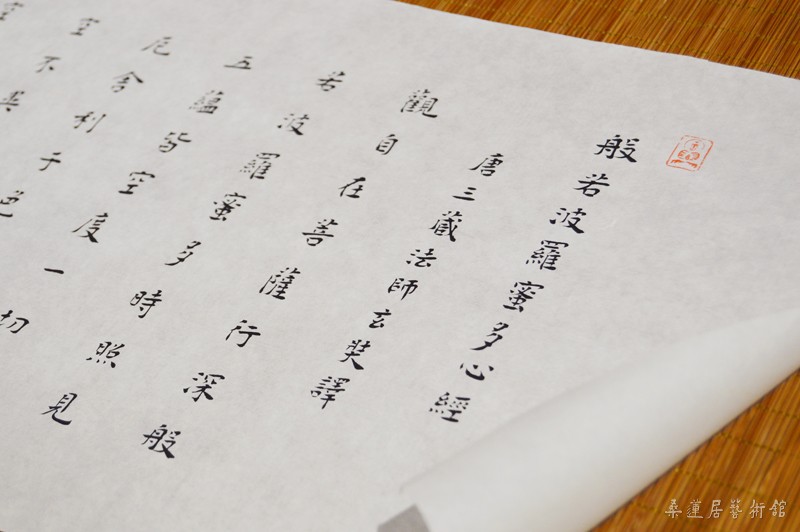 般若波羅蜜多心經
唐三藏法師玄奘譯
觀自在菩薩行深般
若波羅蜜多時照見
五蘊皆空度一切
厄舍利子色
空不異
空
桑蓮居藝術館